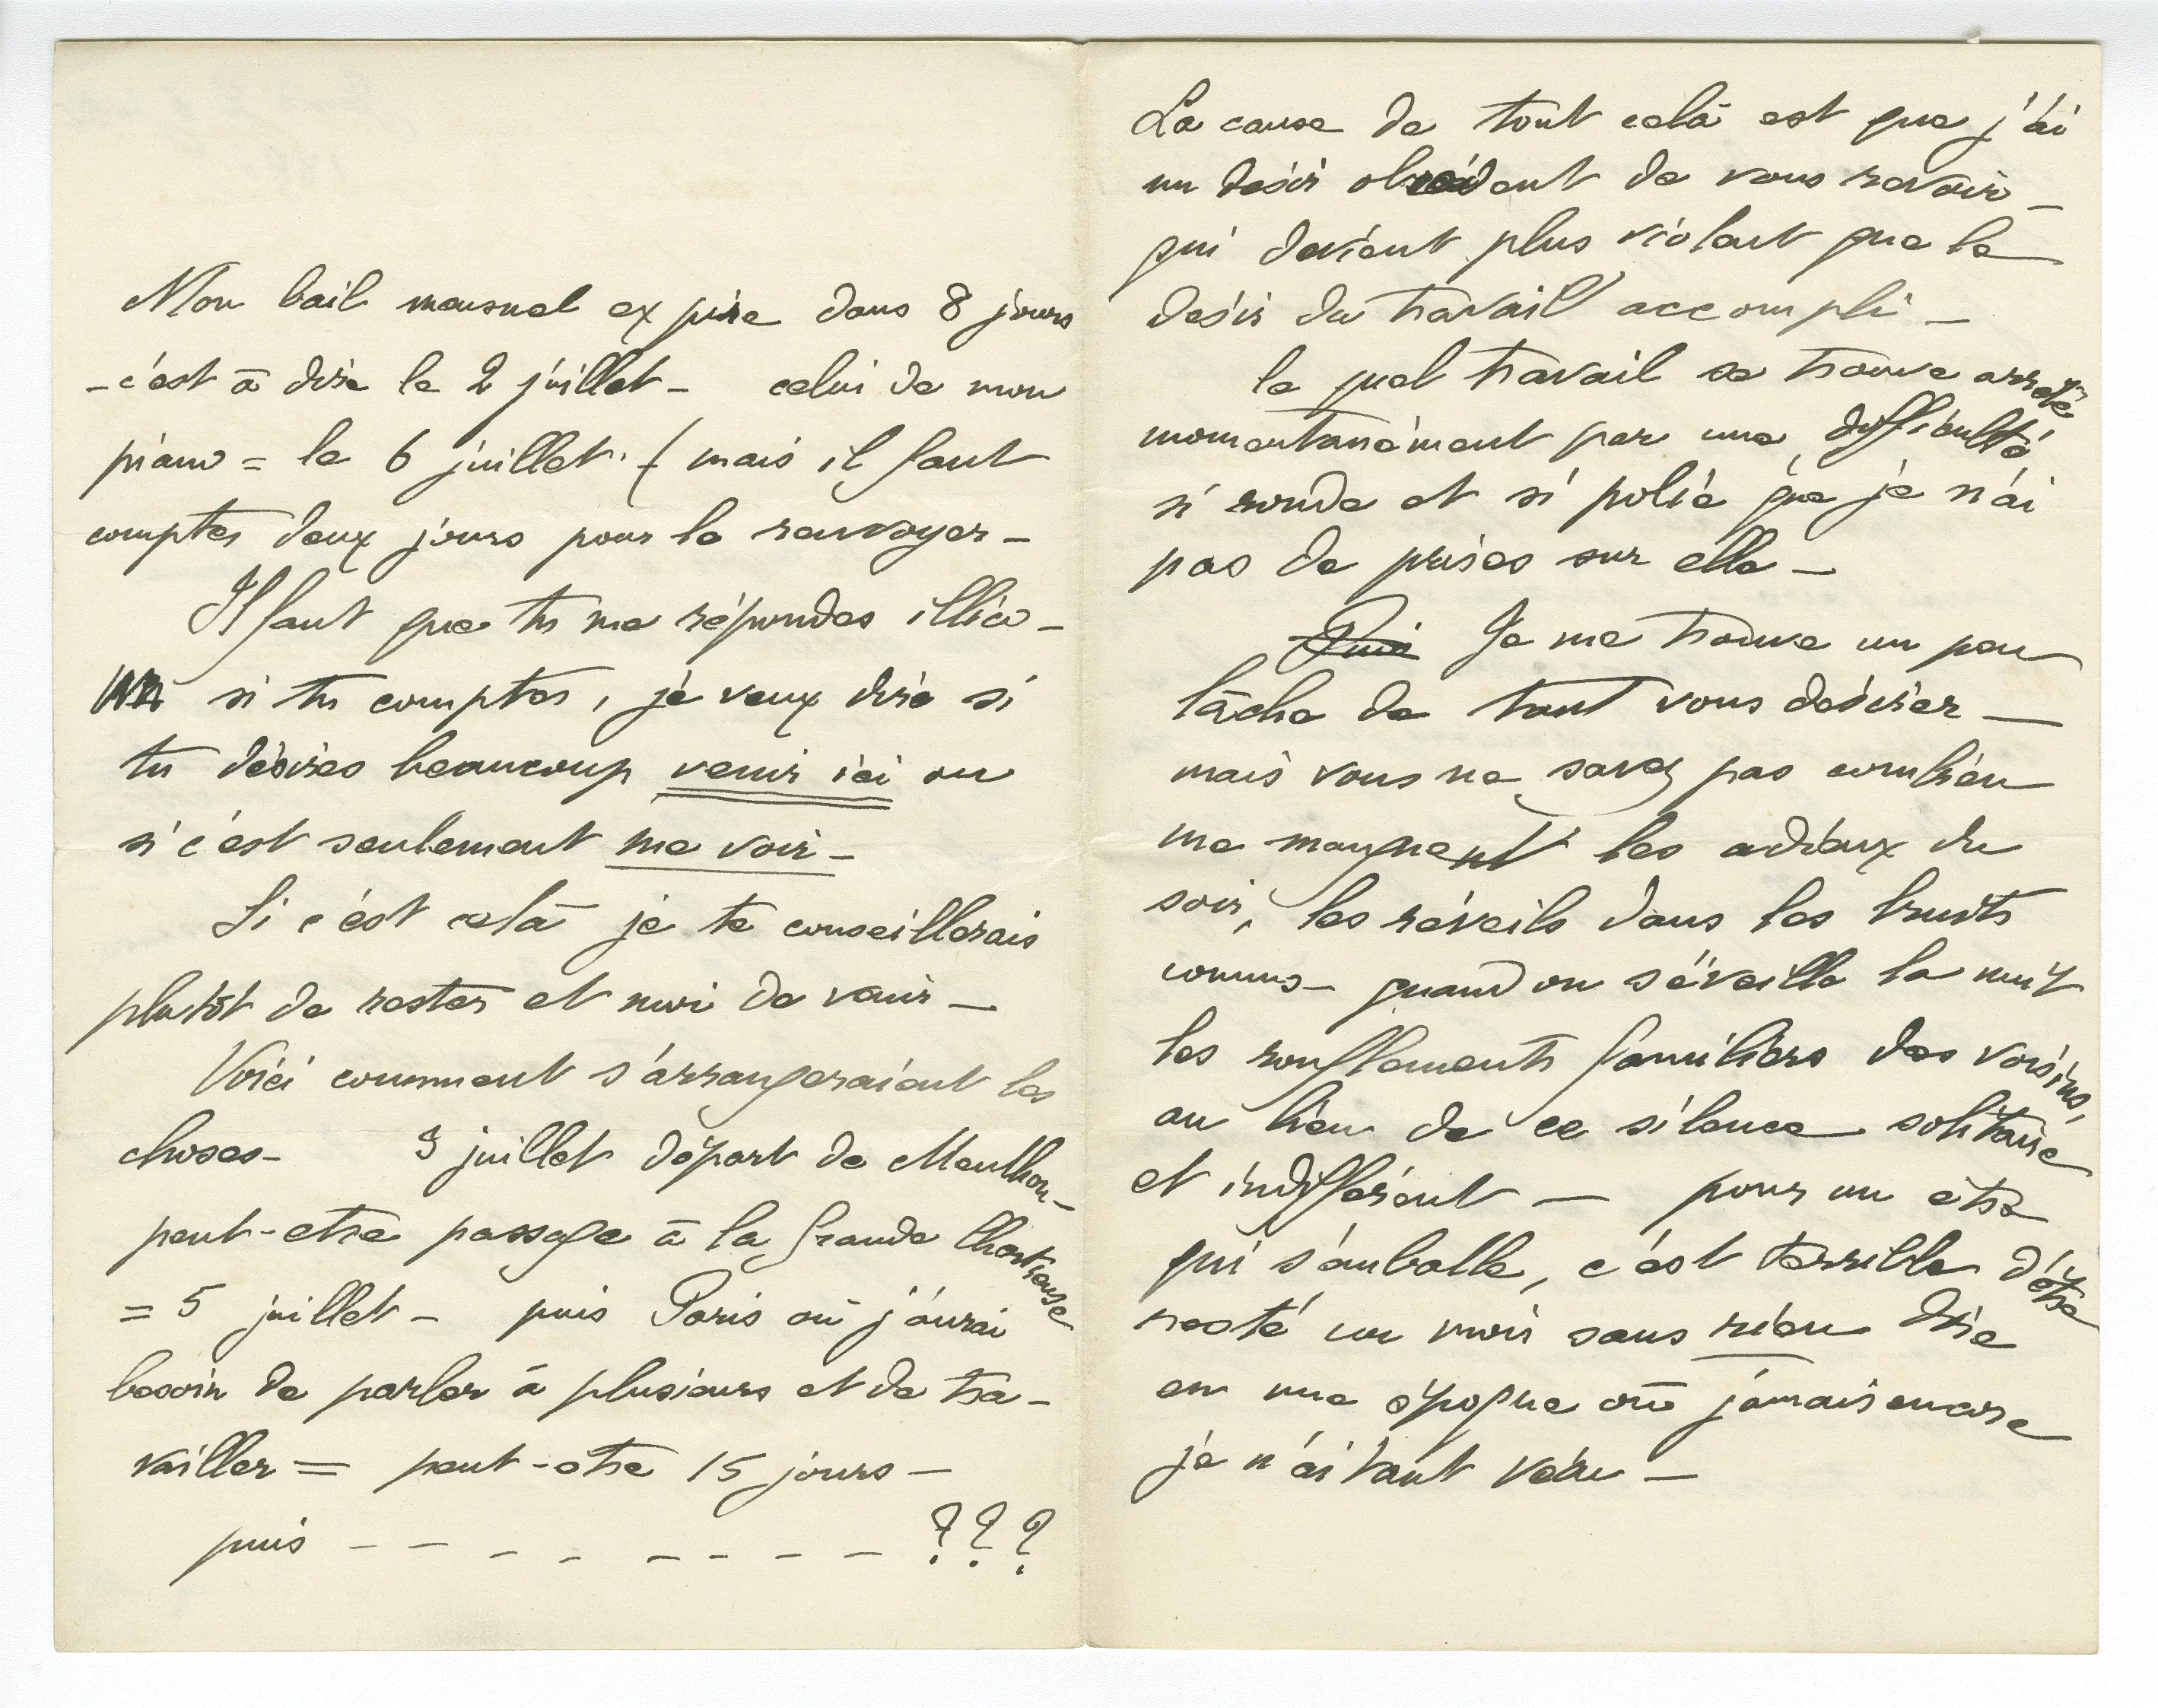 Mon bail mensuel expire dans 8 jours
- c'est à dire le 2 juillet - celui de mon
piano = le 6 juillet. ( mais il faut
compter deux jours pour le renvoyer -
Il faut que tu me répondes illico -
si tu comptes, je veux dire si
tu désires beaucoup venir ici ou
si c'est seulement me voir -
Si c'est celà je te conseillerais
plutôt de rester et moi de venir -
Voici comment s'arrangeraient les
choses - 3 juillet départ de Menthon -
peut-etre passage à la Grande Chartreuse
= 5 juillet - puis Paris où j'aurai
besoin de parler à plusieurs et de tra-
vailler = peut-etre 15 jours -
puis - - - - - - - - ???
La cause de tout celà est que j'ai
un désir obsédant de vous revoir -
qui devient plus violent que le
désir du travail accompli -
le quel travail se trouve arrêté
momentanément par une difficulté
si ronde et si polie que je n'ai
pas de prises sur elle -
Puis Je me trouve un peu
lâche de tant vous désirer -
mais vous ne savez pas combien
me manquent les adieux du
soir, les réveils dans les bruits
connus - quand on s'éveille la nuit
les ronflements familiers des voisins,
au lieu de ce silence solitaire
et indifférent - pour un être
qui s'emballe, c'est terrible d'être
resté un mois sans rien dire
en une époque où jamais encore
je n'ai tant vécu -